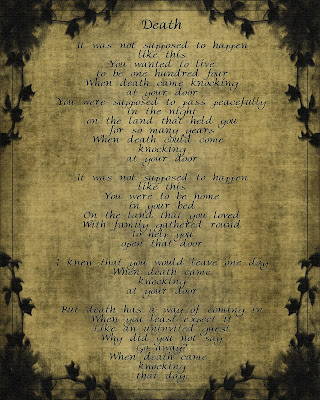 Death
It was not supposed to happen
like this
You wanted to live
to be one hundred four
When death came knocking
at your door
You were supposed to pass peacefully
in the night
on the land that held you
for so many years
When death could come
knocking
at your door
It was not supposed to happen
like this
You were to be home
in your bed
On the land that you loved
With family gathered round
To help you
open that door
I knew that you would leave one day
When death came
knocking
at your door
But death has a way of coming in
When you least expect it
Like an uninvited guest
Why did you not say
Go away?
When death came
knocking
that day